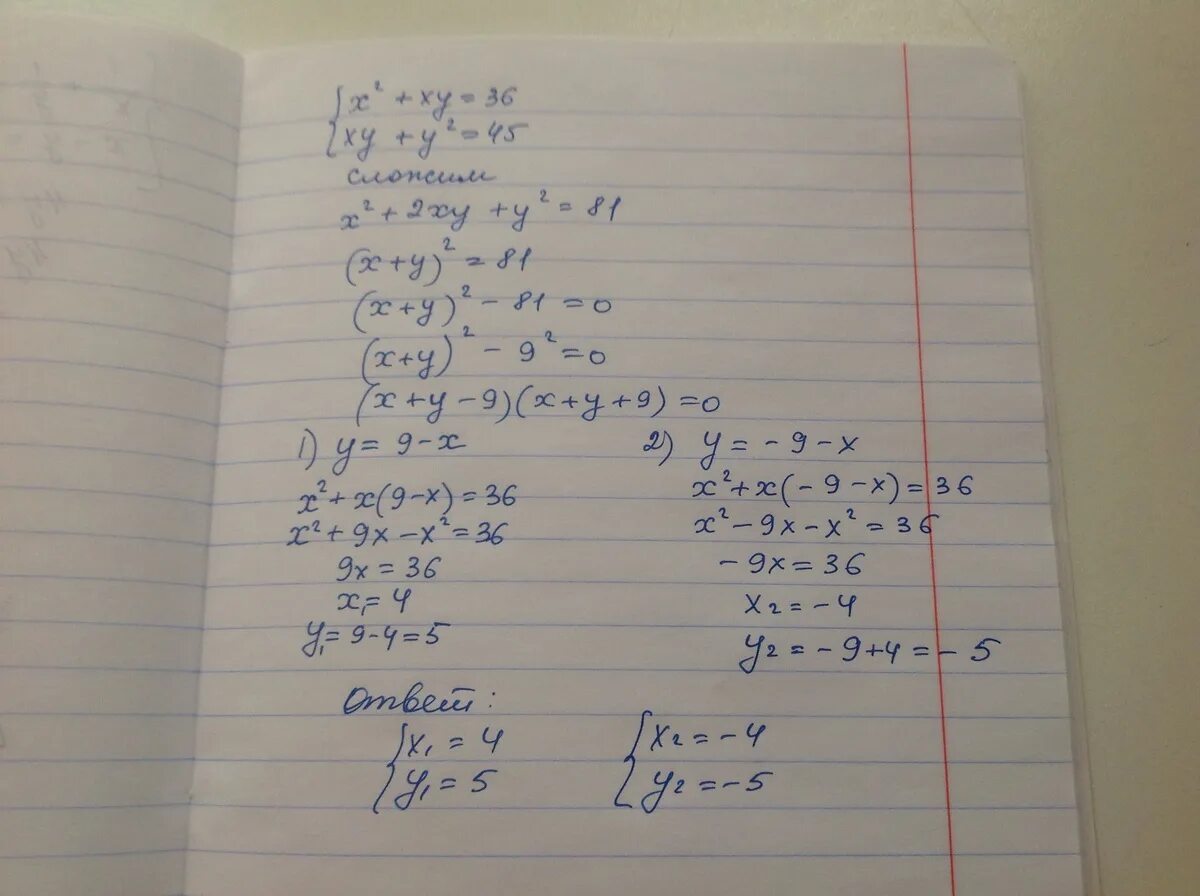 {x² + xy = 36
{xy + y² = 45
сложим
x² + 2xy + y² = 81
(x+y)² = 81
(x+y)² - 81 = 0
(x+y)² - 9² = 0
(x+y-9)(x+y+9) = 0
1) y = 9-x
x² + x(9-x) = 36
x² + 9x - x² = 36
9x = 36
x₁ = 4
y₁ = 9-4 = 5
2) y = -9-x
x² + x(-9-x) = 36
x² - 9x - x² = 36
-9x = 36
x₂ = -4
y₂ = -9+4 = -5
Ответ:
{x₁ = 4
{y₁ = 5
{x₂ = -4
{y₂ = -5